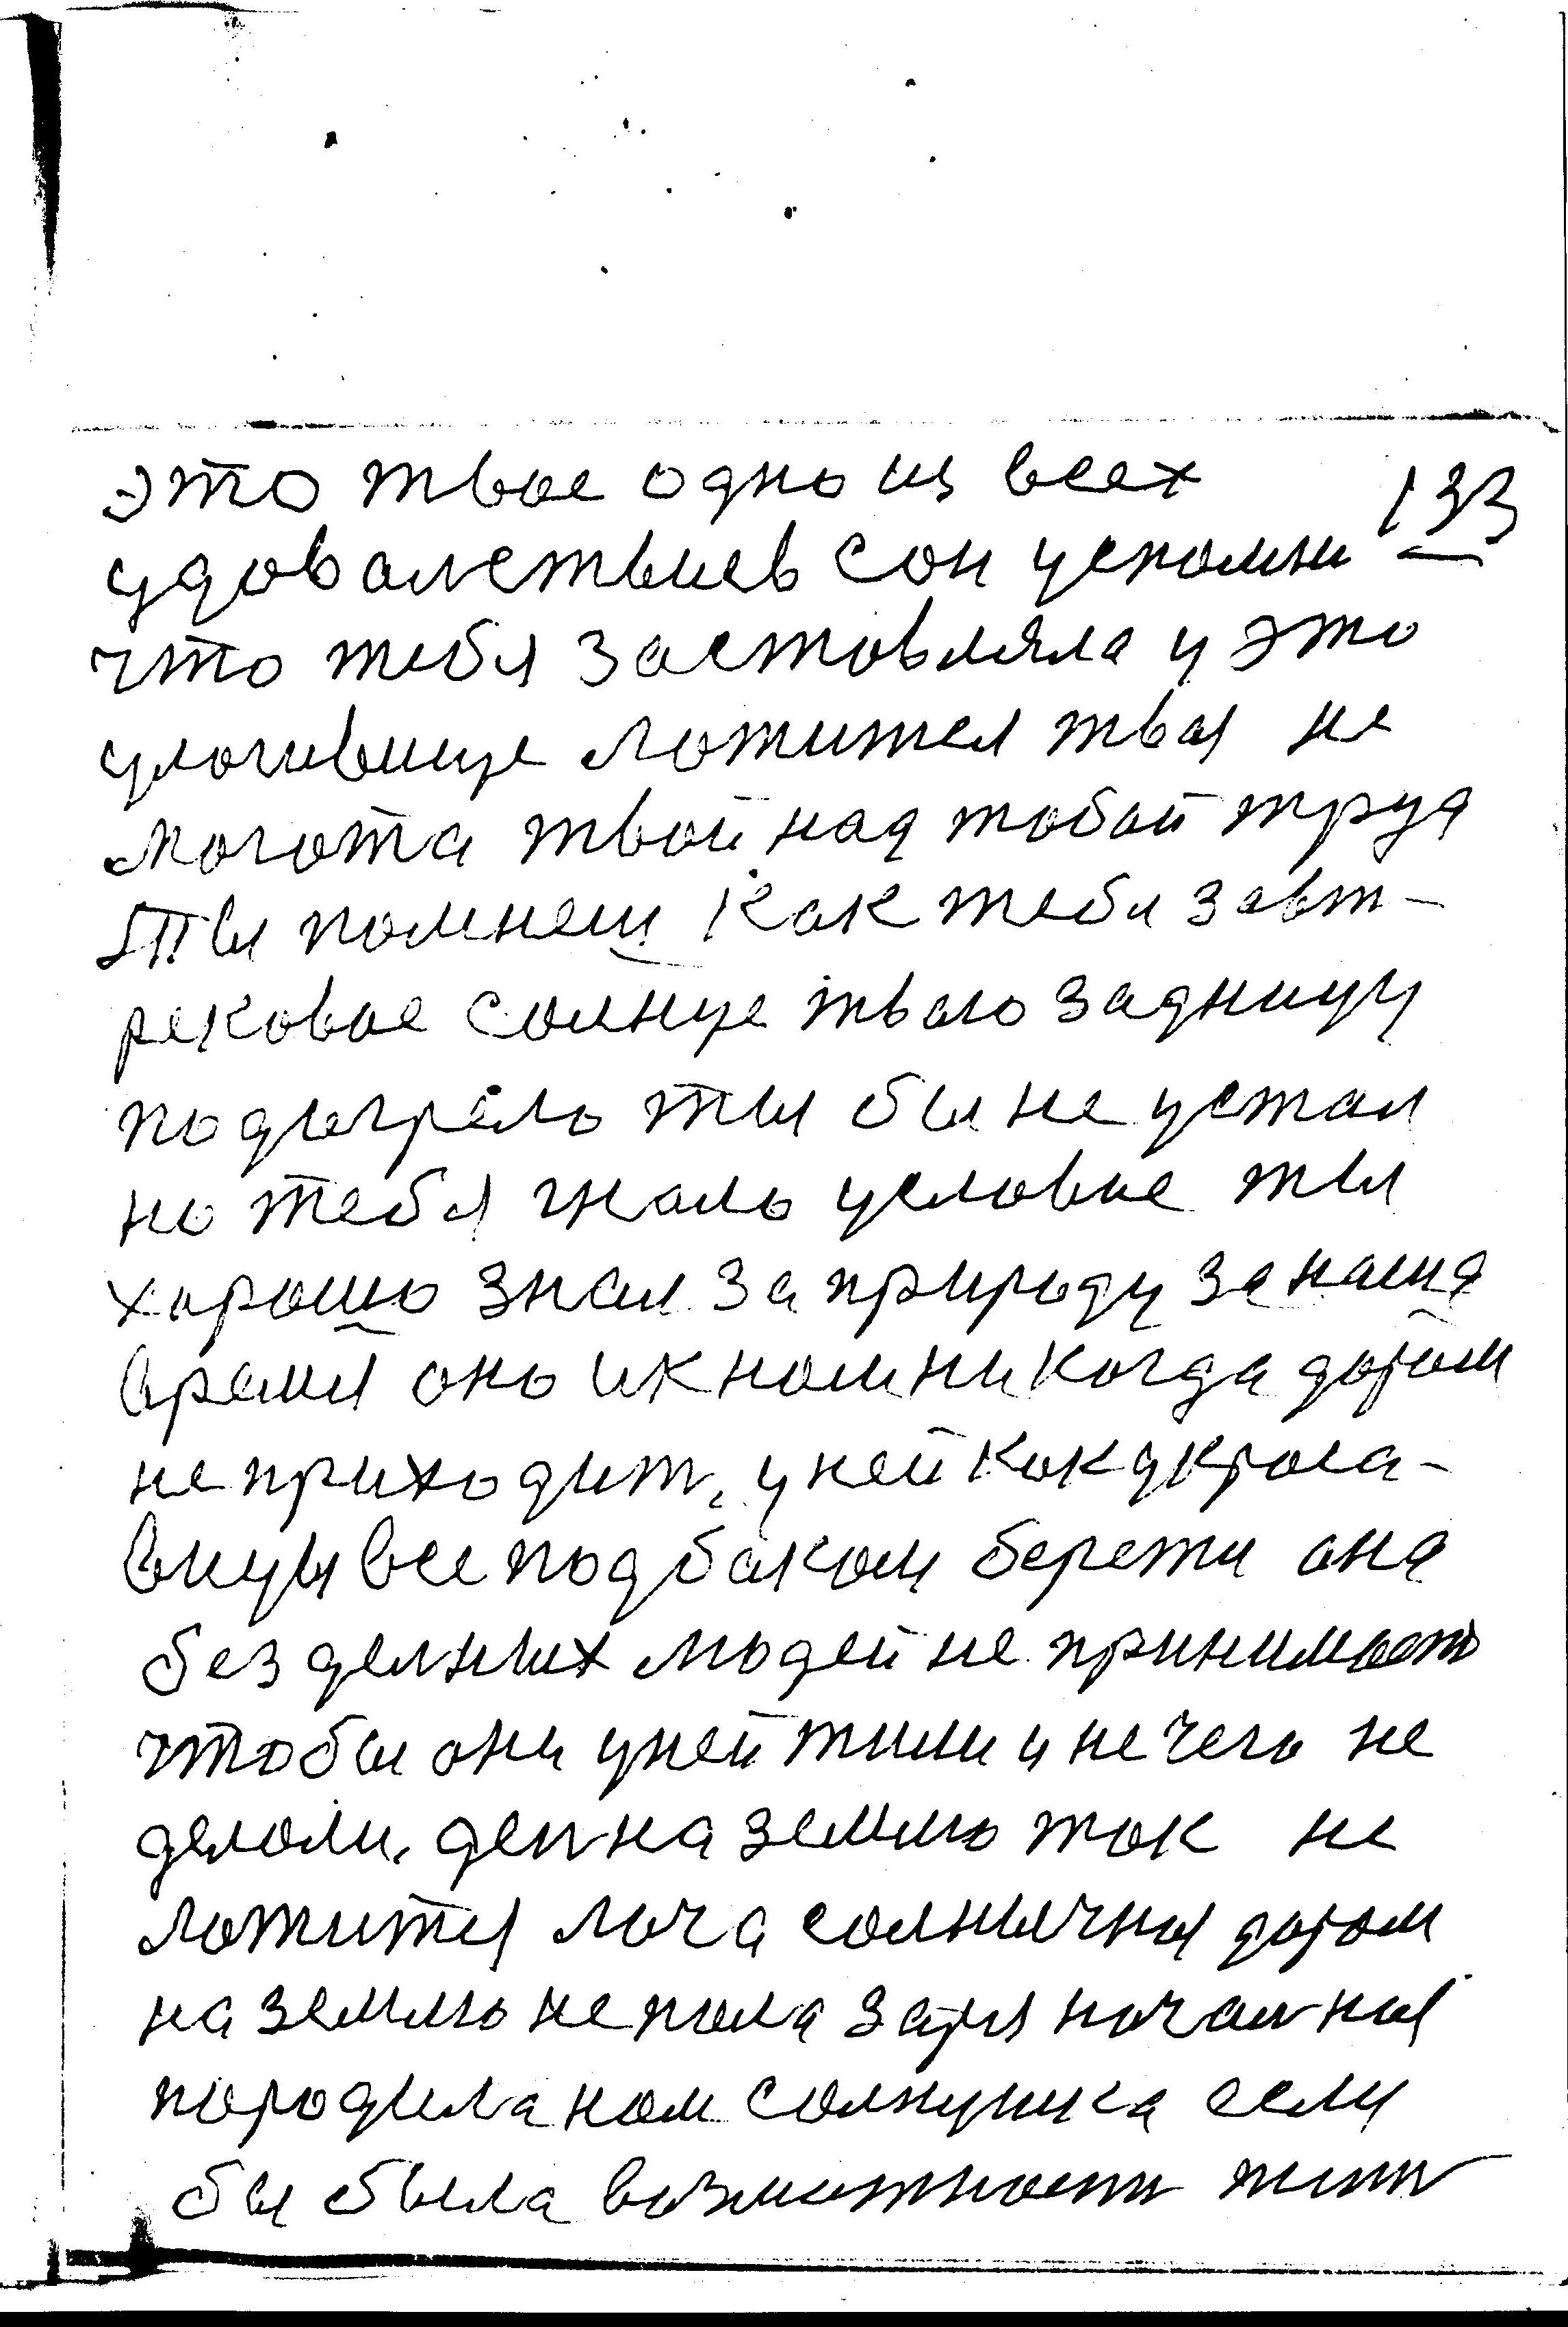 это твое одно из всех 133
удовалетвиев сон успомни
что тебя застовляла у это
улогивище ложится твая не
могота твой над тобой труд
Ты помнеш как тебя завт-
рековое солнце твою задницу
подыгрело ты бы не устал
но тебя гнало условие ты
хорошо знал за природу за наше
время оно и к ном никогда даром
не приходит, у ней как у краса-
вицы все под боком бережи она
без делних людей не принимает
чтобы они у ней жили и нечего не
делоли, ден на землю ток не
ложится луча солнычная даром
на землю не пола заря начал ная
породила ном солнушка если
бы была возможность жить